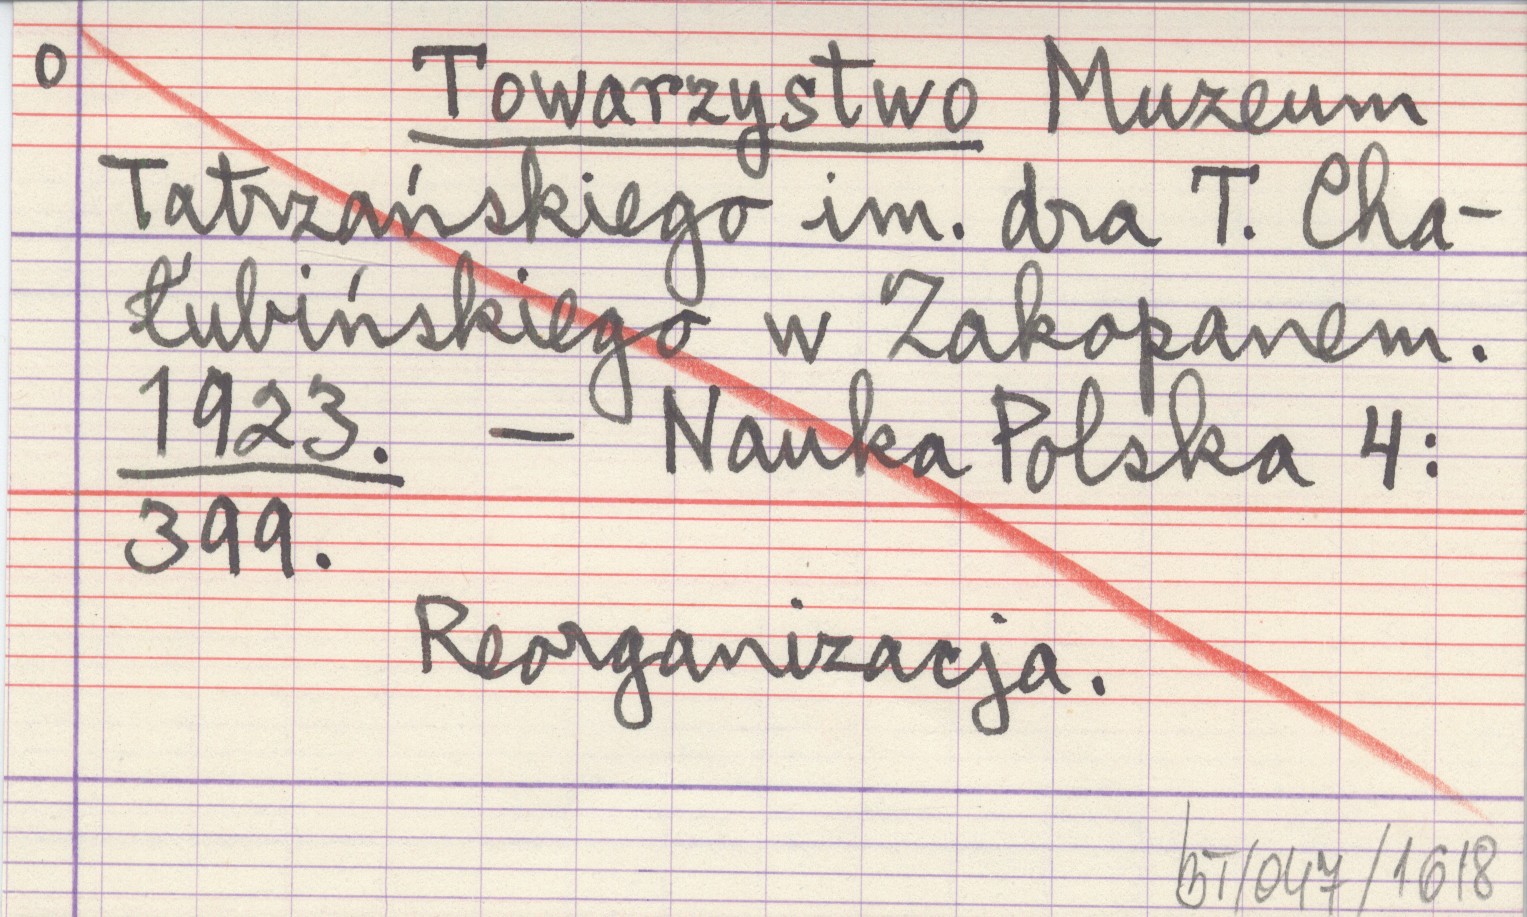 0 Towarzystwo Muzeum
Tatrzańskiego im. dra T. Cha-
łubińskiego w Zakopanem.
1923. — Nauka Polska 4:
399.
Reorganizacja.
BT/047/1618